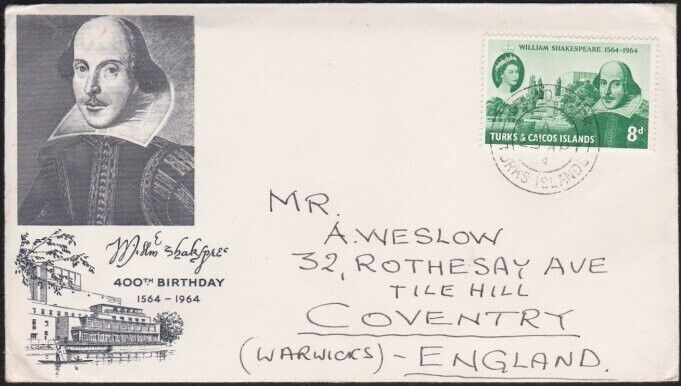 WILLIAM SHAKESPEARE 1564-1964
TURKS & CAICOS ISLANDS 8d
TURKS ISLANDS
400TH BIRTHDAY
1564 - 1964
MR.
A. WESLOW
32, ROTHESAY AVE
TILE HILL
COVENTRY
(WARWICKS) - ENGLAND.